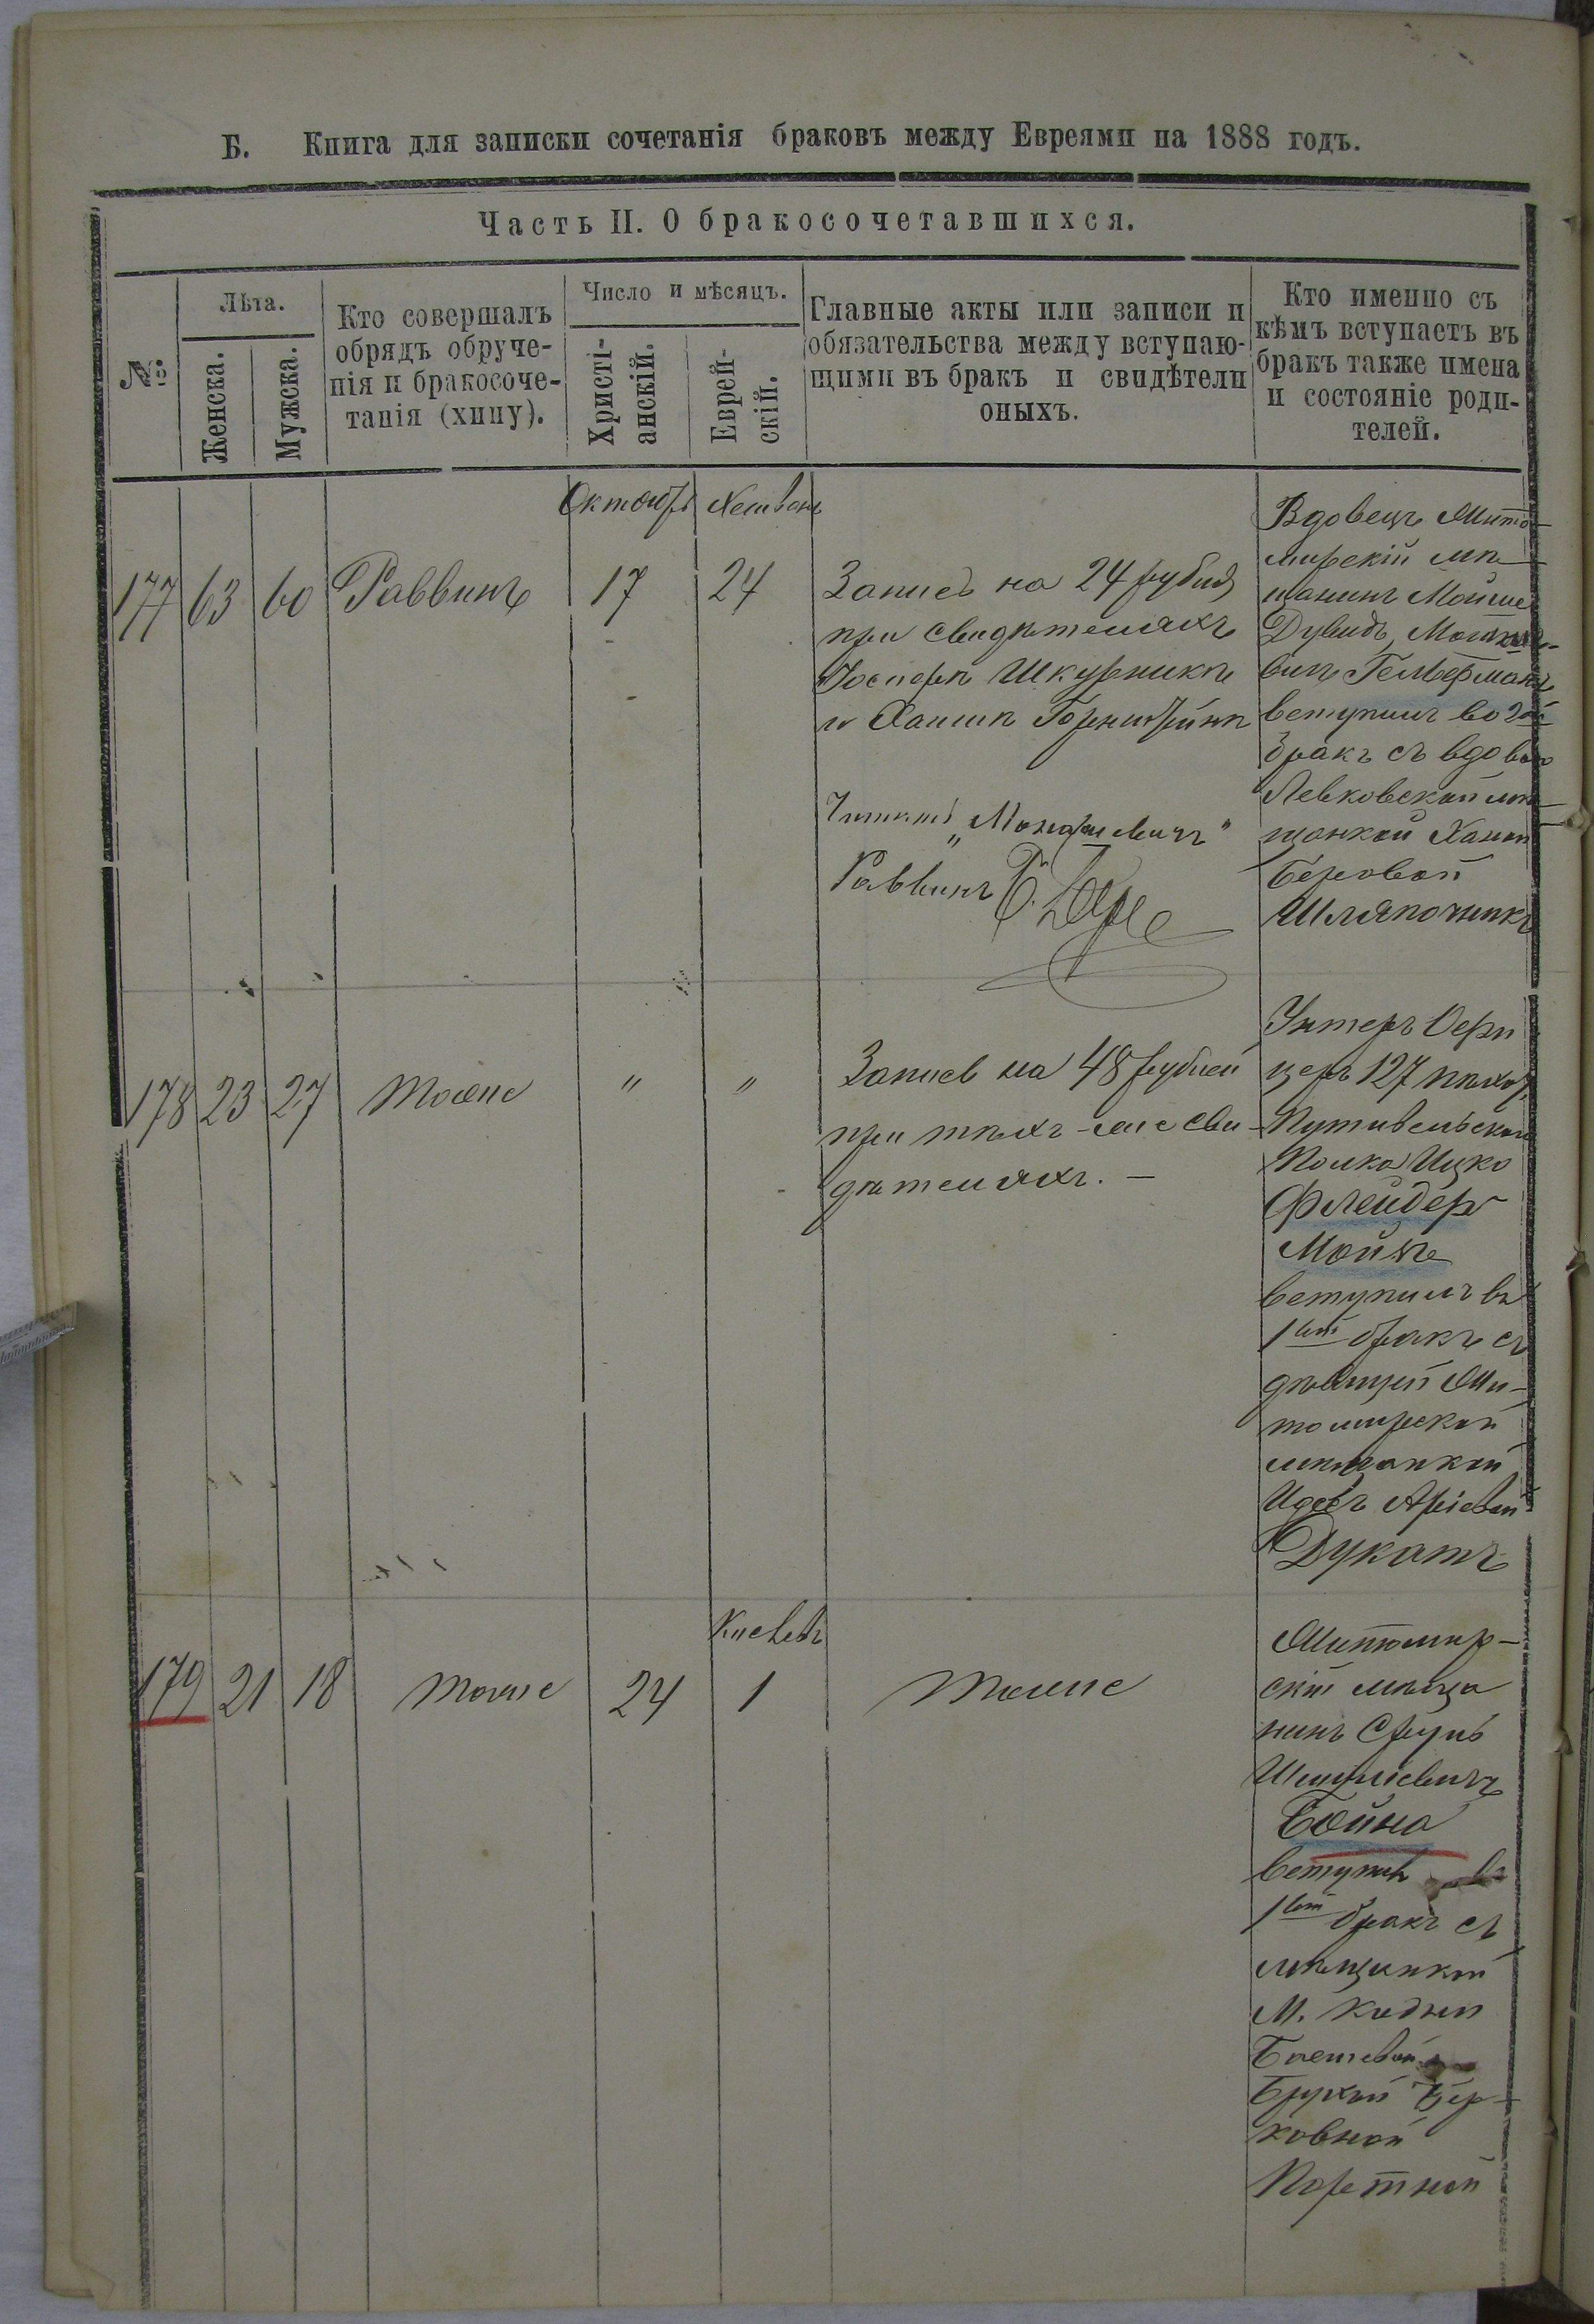 Б. Книга для записки сочетанія браковъ между Евреями на 1888 годъ.
Часть II. О бракосочетавшихся.
№
Лѣта.
Женска.
Мужска.
Кто совершалъ
обрядъ обруче-
нія и бракосоче-
танія (хипу).
Число и мѣсяцъ.
Христі-
анскій.
Еврей-
скій.
Главные акты или записи и
обязательства между вступаю-
щими въ бракъ и свидѣтели
оныхъ.
Кто именно съ
кѣмъ вступаетъ въ
бракъ также имена
и состояніе роди-
телей.
Октября Хешвонъ
177 63 60 Раввинъ 17 24
Запись на 24 рубля
при свидѣтеляхъ
Іосифѣ Шкурникѣ
и Хаимѣ
Раввинъ
Вдовецъ Жито-
мирскій мѣ-
щанинъ Мойше
Дувидъ
вичъ Гельферманъ
вступилъ во 2ой
бракъ съ вдовою
Левковской мѣ-
щанкой Ханой
Беровой
Шляпочникъ
178 23 27 тоже " "
Запись на 48 рублей
при тѣхъ-же сви-
дѣтеляхъ. —
Унтеръ Офи
церъ 127 пѣхот.
Путивельскаго
Полка Ицко
Флейдеръ
Мойше
вступилъ въ
1ый бракъ съ
дѣвицей Жи-
томирской
мѣщанкой
Аріевой
Дукатъ
Кислевъ
179 21 18 тоже 24 1 тоже
Житомир-
скій мѣща
нинъ Сруль
Шмулевичъ
Бойна
вступилъ въ
1ый бракъ съ
мѣщанкой
М. Кодни
Брухой Бер-
ковной
Портной